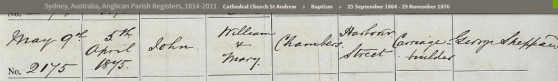 Sydney, Australia, Anglican Parish Registers, 1814-2011 Cathedral Church St Andrew > Baptism > 25 September 1864 - 29 November 1876
No.
May 9th 5th April 1875. John William & Mary. Chambers. Harbour Street Carriage builder George Sheppard
No. 2175